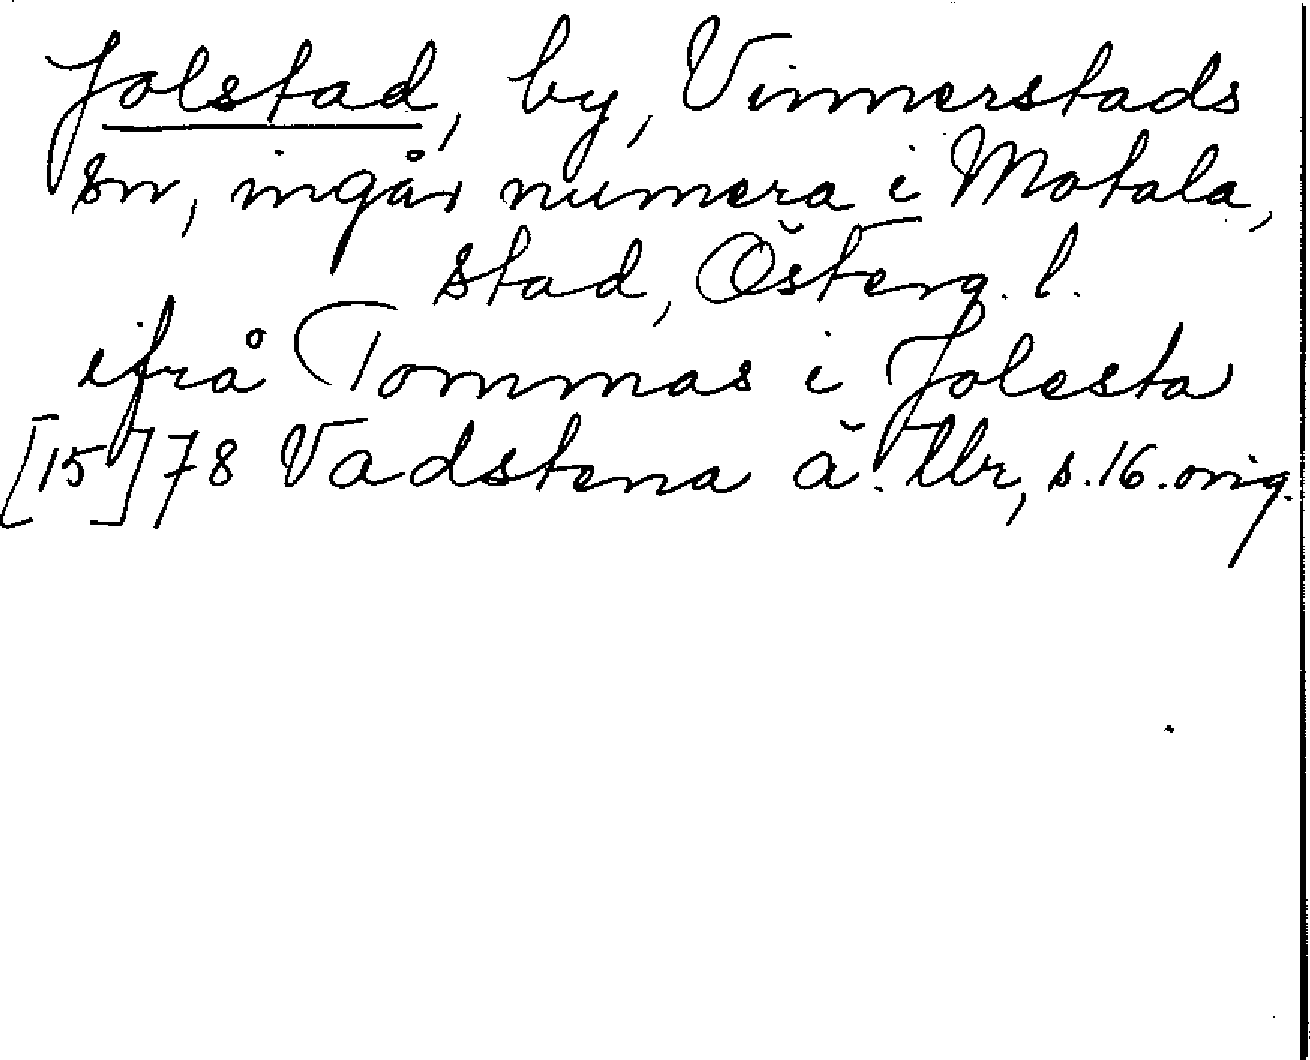 Jolstad, by, Vinnerstads
sn, ingår numera i Motala,
stad, Österg. l.
ifrå Tommas i Jolesta
[15]78 Vadstena ä. tbr, s. 16. orig.